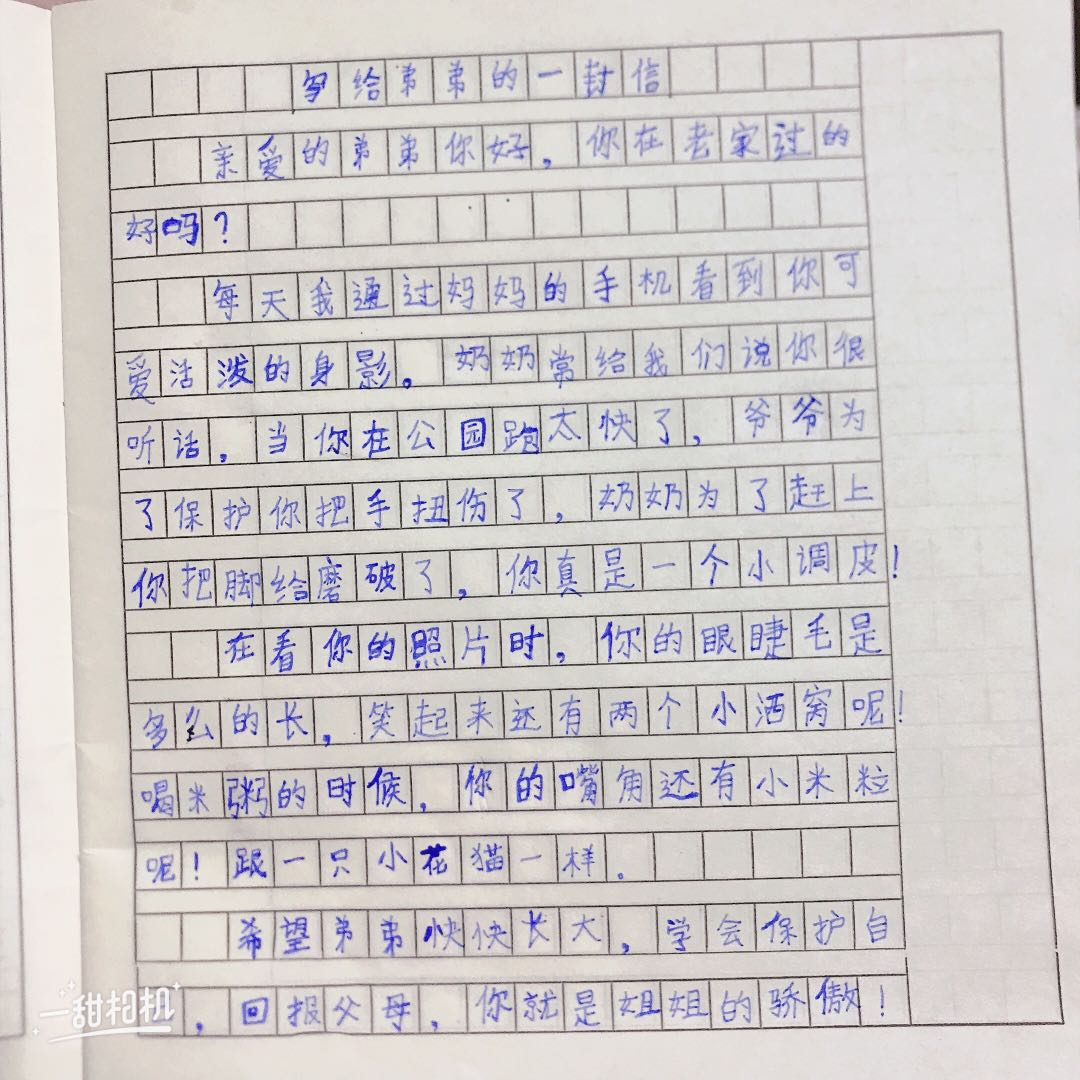 写给弟弟的一封信
亲爱的弟弟你好，你在老家过的
好吗？
每天我通过妈妈的手机看到你可
爱活泼的身影。奶奶常给我们说你很
听话，当你在公园跑太快了，爷爷为
了保护你把手扭伤了，奶奶为了赶上
你把脚给磨破了，你真是一个小调皮！
在看你的照片时，你的眼睫毛是
多么的长，笑起来还有两个小酒窝呢！
喝米粥的时候，你的嘴角还有小米粒
呢！跟一只小花猫一样。
希望弟弟快快长大，学会保护自
，回报父母，你就是姐姐的骄傲！
一甜相机